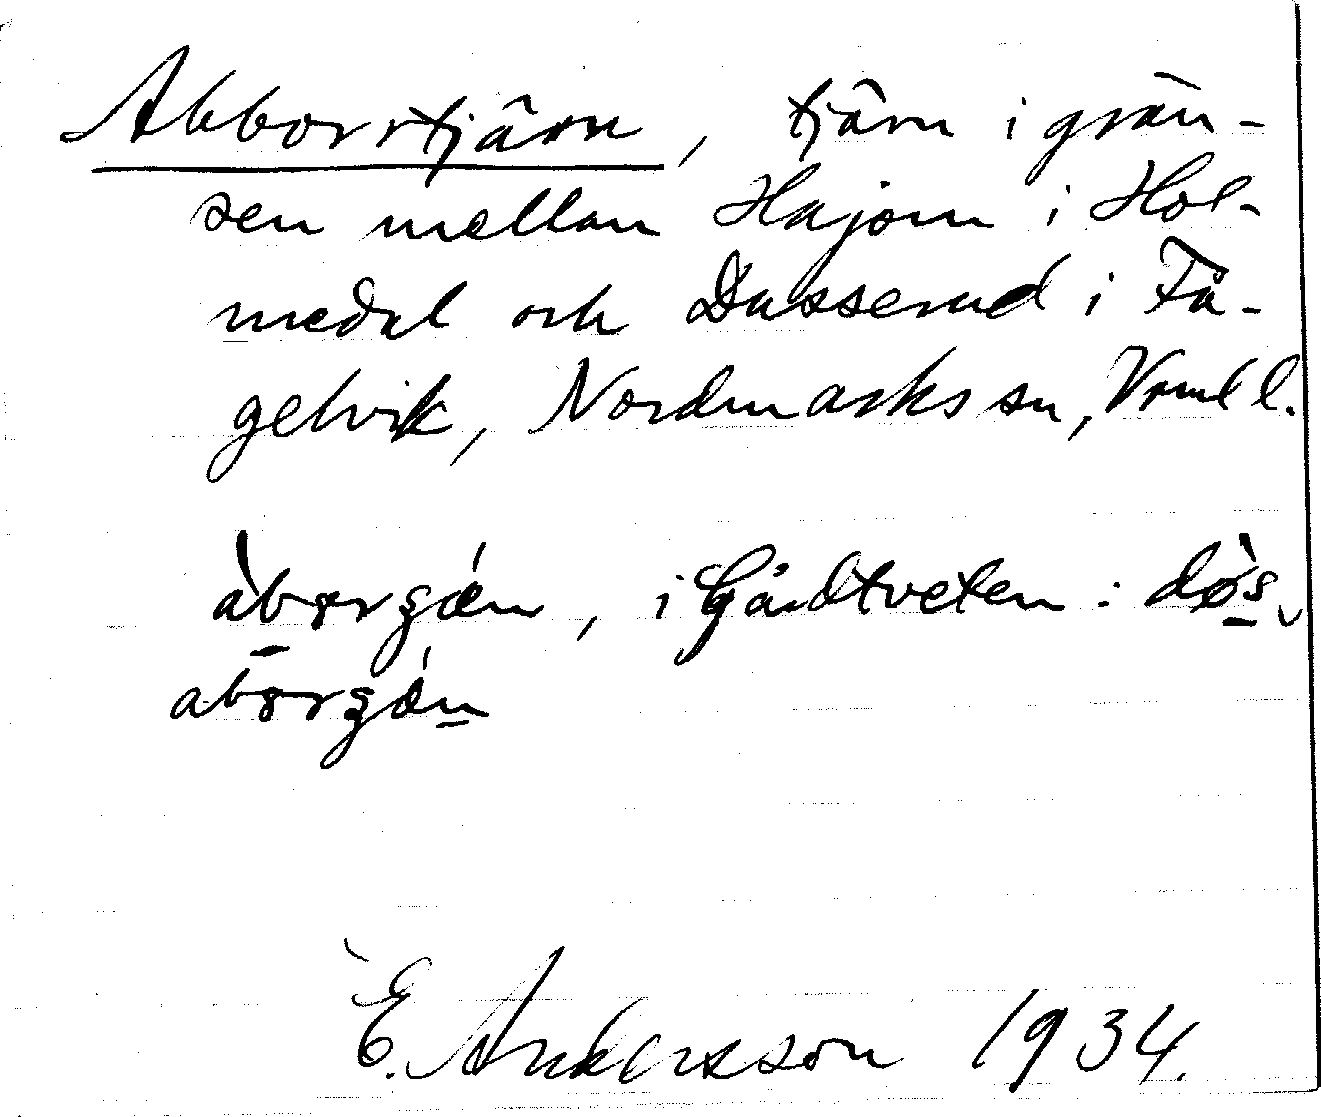 Abborrtjärn, tjärn i grän-
sen mellan Hajom i Hol-
medal och Dusserud i Få-
gelvik, Nordmarks sn, Vrml l.
i Gårdtveten:
E. Andersson 1934.